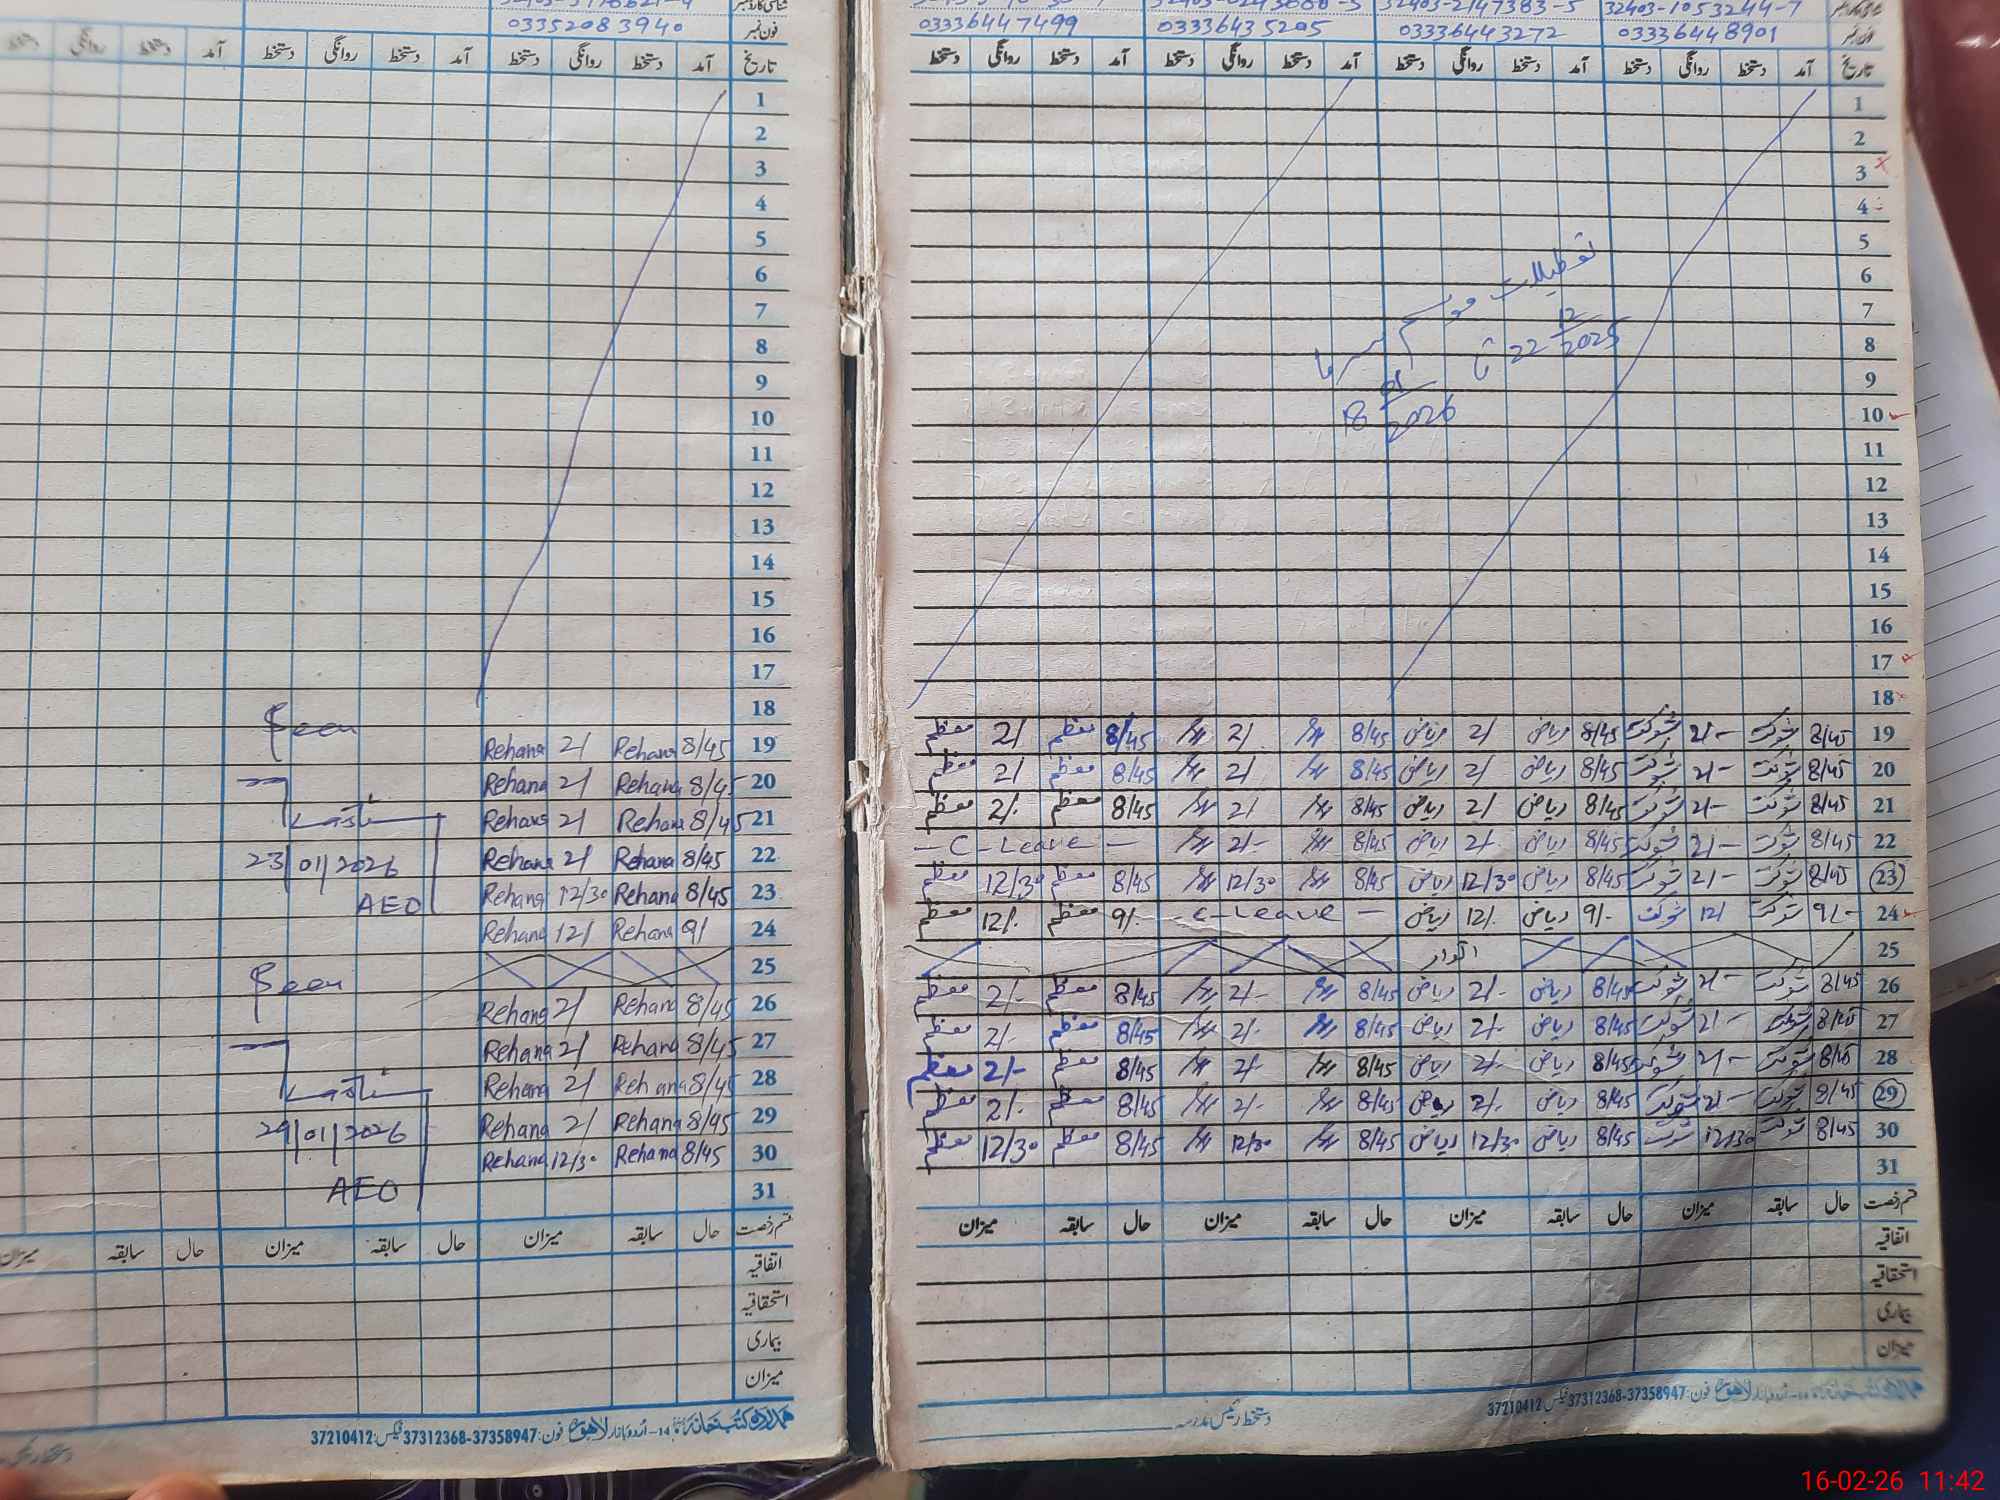 شناختی کارڈ نمبر
32403-2147383-5 32403-1053244-7
فون نمبر 03336448901 03336443272 03336435205 03336447499
تاریخ آمد دستخط روانگی دستخط آمد دستخط روانگی دستخط آمد دستخط روانگی دستخط آمد دستخط روانگی دستخط
1
2
3
4
5
6
7
8
9
10
11
12
13
14
15
16
17
18
تعطیلات موسم سرما
22 12/2025 تا
18 01/2026
19 8/45 شوکت 2/- شوکت 8/45 ریاض 2/ ریاض 8/45 2/ 8/45 معظم 2/ معظم
20 8/45 شوکت 2/- شوکت 8/45 ریاض 2/ ریاض 8/45 2/ 8/45 معظم 2/ معظم
21 8/45 شوکت 2/- شوکت 8/45 ریاض 2/ ریاض 8/45 2/ 8/45 معظم 2/. معظم
22 8/45 شوکت 2/- شوکت 8/45 ریاض 2/. ریاض 8/45 2/- - C - Leave -
23 8/45 شوکت 2/- شوکت 8/45 ریاض 12/30 ریاض 8/45 12/30 8/45 معظم 12/30 معظم
24 9/- شوکت 12/ شوکت 9/- ریاض 12/. ریاض - C - Leave - 9/- معظم 12/. معظم
25 اتوار
26 8/45 شوکت 2/- شوکت 8/45 ریاض 2/- ریاض 8/45 2/- 8/45 معظم 2/- معظم
27 8/45 شوکت 2/- شوکت 8/45 ریاض 2/- ریاض 8/45 2/- 8/45 معظم 2/- معظم
28 8/45 شوکت 2/- شوکت 8/45 ریاض 2/- ریاض 8/45 2/- 8/45 معظم 2/- معظم
29 8/45 شوکت 2/- شوکت 8/45 ریاض 2/- ریاض 8/45 2/- 8/45 معظم 2/- معظم
30 8/45 شوکت 12/30 شوکت 8/45 ریاض 12/30 ریاض 8/45 12/30 8/45 معظم 12/30 معظم
31
قسم رخصت حال سابقہ میزان حال سابقہ میزان حال سابقہ میزان حال سابقہ میزان
اتفاقیہ
استحقاقیہ
بیماری
میزان
ہمدرد کتب خانہ اردو بازار لاہور فون: 37358947-37312368 فیکس: 37210412
دستخط رئیس مدرسہ
شناختی کارڈ نمبر
فون نمبر 03352083940
تاریخ آمد دستخط روانگی دستخط آمد دستخط روانگی دستخط آمد دستخط روانگی
1
2
3
4
5
6
7
8
9
10
11
12
13
14
15
16
17
18
19 8/45 Rehana 2/ Rehana
20 8/45 Rehana 2/ Rehana
21 8/45 Rehana 2/ Rehana
22 8/45 Rehana 2/ Rehana
23 8/45 Rehana 12/30 Rehana
24 9/ Rehana 12/ Rehana
25
26 8/45 Rehana 2/ Rehana
27 8/45 Rehana 2/ Rehana
28 8/45 Rehana 2/ Rehana
29 8/45 Rehana 2/ Rehana
30 8/45 Rehana 12/30 Rehana
31
Seen
23/01/2026
AEO
Seen
29/01/2026
AEO
قسم رخصت حال سابقہ میزان حال سابقہ میزان حال سابقہ میزان
اتفاقیہ
استحقاقیہ
بیماری
میزان
ہمدرد کتب خانہ 14-اردو بازار لاہور فون: 37358947-37312368 فیکس: 37210412
16-02-26 11:42